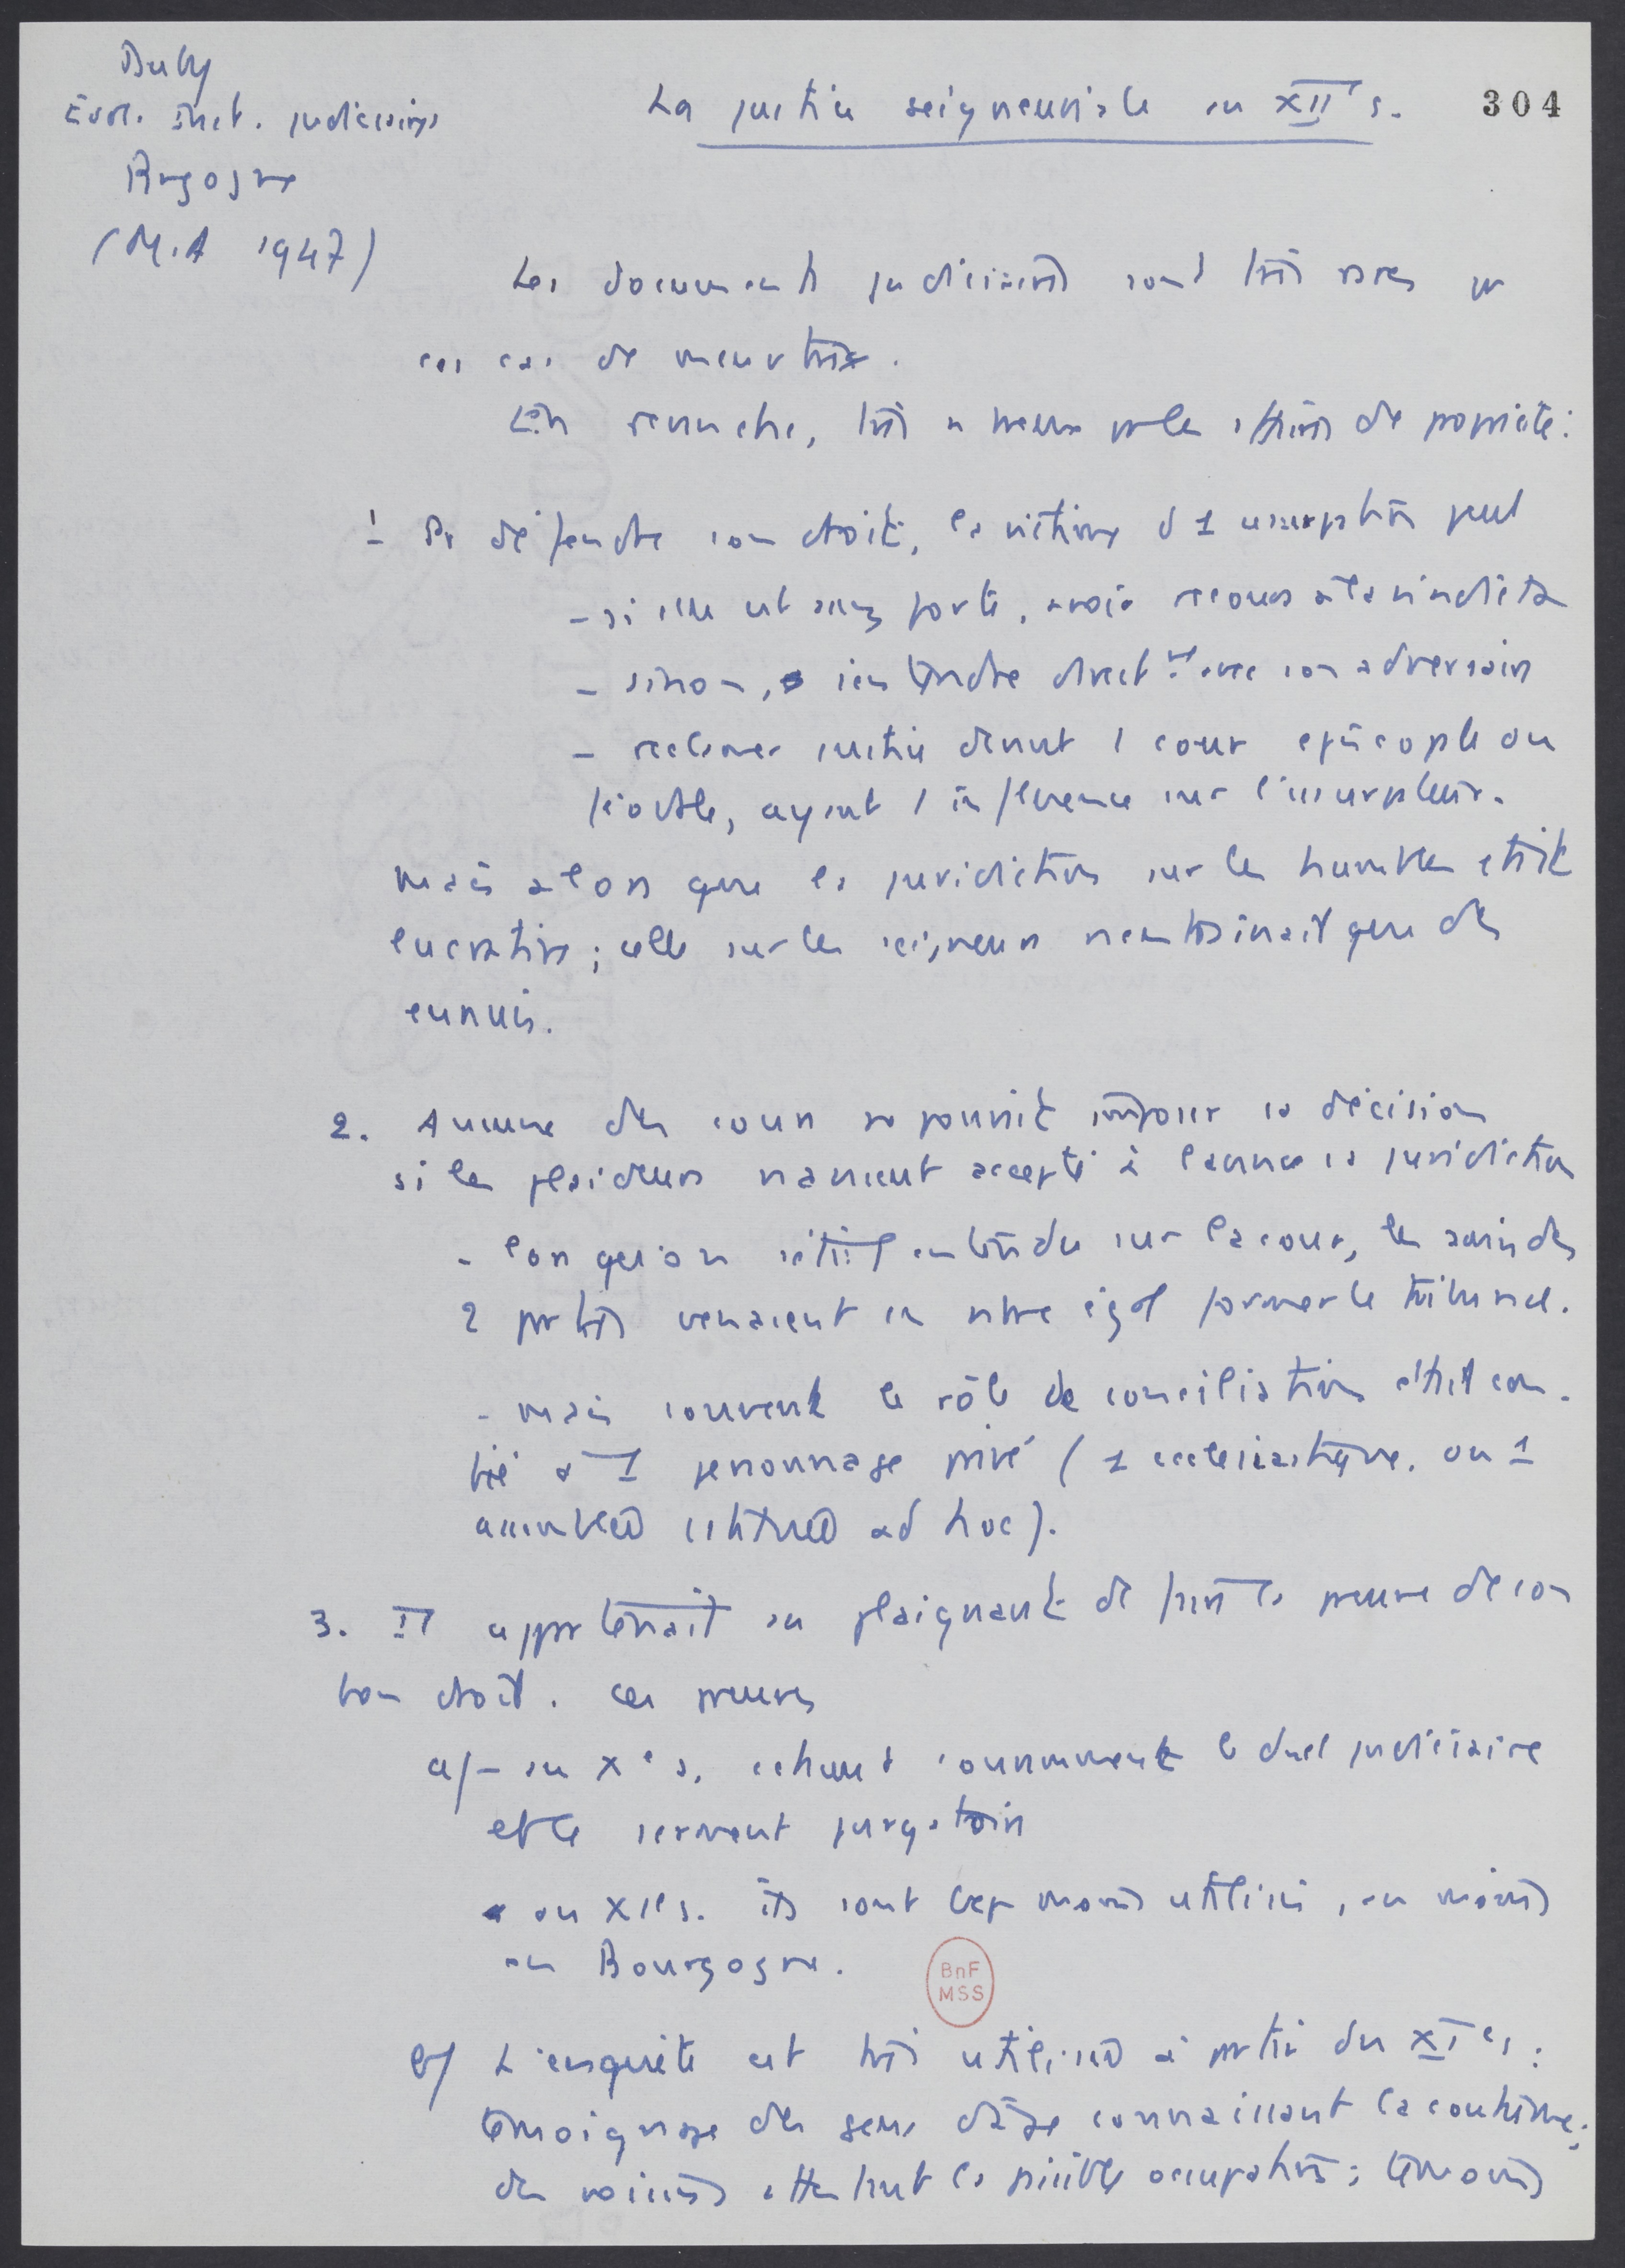 Duby
Évol. Inst. judiciaires
Bourgogne
(M.A 1947)
La justice seigneuriale au XIIe s.
304
Les documents judiciaires sont très rares pr
les cas de meurtre.
En revanche, très nbreux pr les affaires de propriété:
1 Pr défendre son droit, la victime d'1 usurpation peut
- si elle est assez forte, avoir recours à la vindicta
- sinon, s'entendre direct.nt avec son adversaire
- réclamer justice devant 1 cour épiscopale ou
féodale, ayant 1 influence sur l'usurpateur.
mais alors que la juridiction sur les humbles était
lucrative; celle sur les seigneurs n'entraînait que des
ennuis.
2. Aucune des cours ne pouvait imposer sa décision
si les plaideurs n'avaient accepté à l'avance sa juridiction
- lors qu'on s'était entendu sur la cour, les amis des
2 parties venaient en nbre égal former le tribunal.
- mais souvent le rôle de conciliation était con-
fié à 1 personnage privé (1 ecclésiastique. ou 1
assemblée constituée ad hoc).
3. Il appartenait au plaignant de faire la preuve de son
bon droit. Ces preuves
a/- au Xe s. étaient couramment le duel judiciaire
et le serment purgatoire
au XIIe s. ils sont bcp moins utilisés, au moins
en Bourgogne.
BnF
MSS
b/ L'enquête est très utilisée à partir du XIe s:
témoignage des gens d'âge connaissant la coutume;
des voisins attestant la paisible occupation; témoins